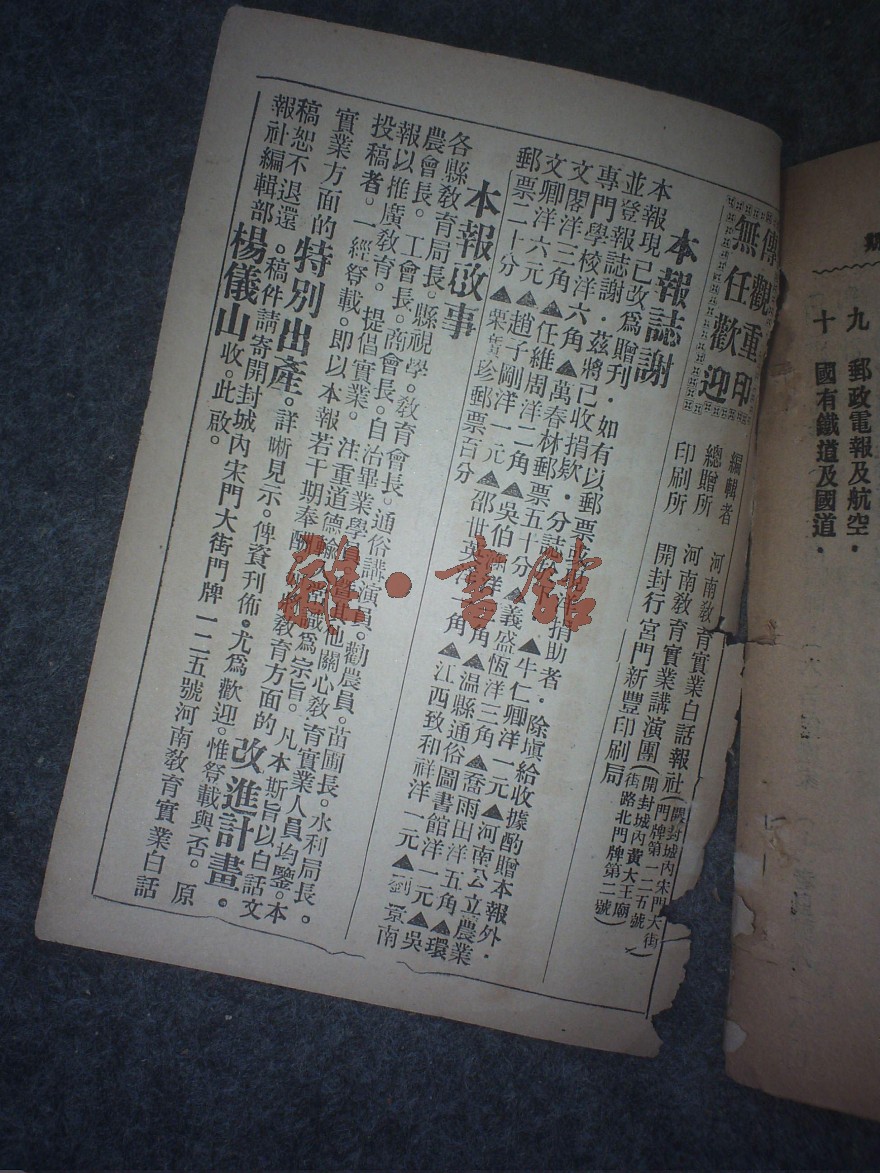 九　郵政電報及航空．
十　國有鐵道及國道．
傳觀重印
無任歡迎
編輯者　河南敎育實業白話報社（開封城內宋門大街門牌第一二五號）
總贈所　河南敎育實業講演團（開封城內黃大王廟街路北門牌第二號）
印刷所　開封行宮門新豐印刷局
本報誌謝
本報現已改爲贈刊．如有以郵票 捐助者．除塡給收據酌贈本報外．
並登報誌謝．茲將已收捐欵．分誌 ▲牛仁卿洋一元▲河南公立農業
專門學校洋六角▲萬春林郵票五十分▲義盛恆洋三角▲喬雨田洋五角▲環
文閣洋三角▲任維周洋二角▲吳伯 洋 角▲温縣通俗圖書館洋一元▲吳
文卿洋六元▲趙子剛洋一元▲邵世英洋一角▲江西致和祥洋一元▲劉景南
郵票二十分▲栗寳珍郵票百分
本報啟事
各縣敎育局長。縣視學。敎育會長。通俗講演員。勸農員。苗圃長。水利局長。
農會長。工會長。商會長。自治畢業學員 其他關心敎育實業人員均鑒。本
報以推廣敎育。提倡實業。注重道德 輸入智識爲宗旨。凡本斯旨以白話文
投稿者。一經登載。即以本報若干期奉酬 敎育方面的改進計畫。
實業方面的特別出產。詳晰見示。俾資刊佈。尤爲歡迎。惟登載與否。原
稿恕不退還。稿件請寄開封城內宋門大街門牌一二五號河南敎育實業白話
報社編輯部楊儀山收。此啟。